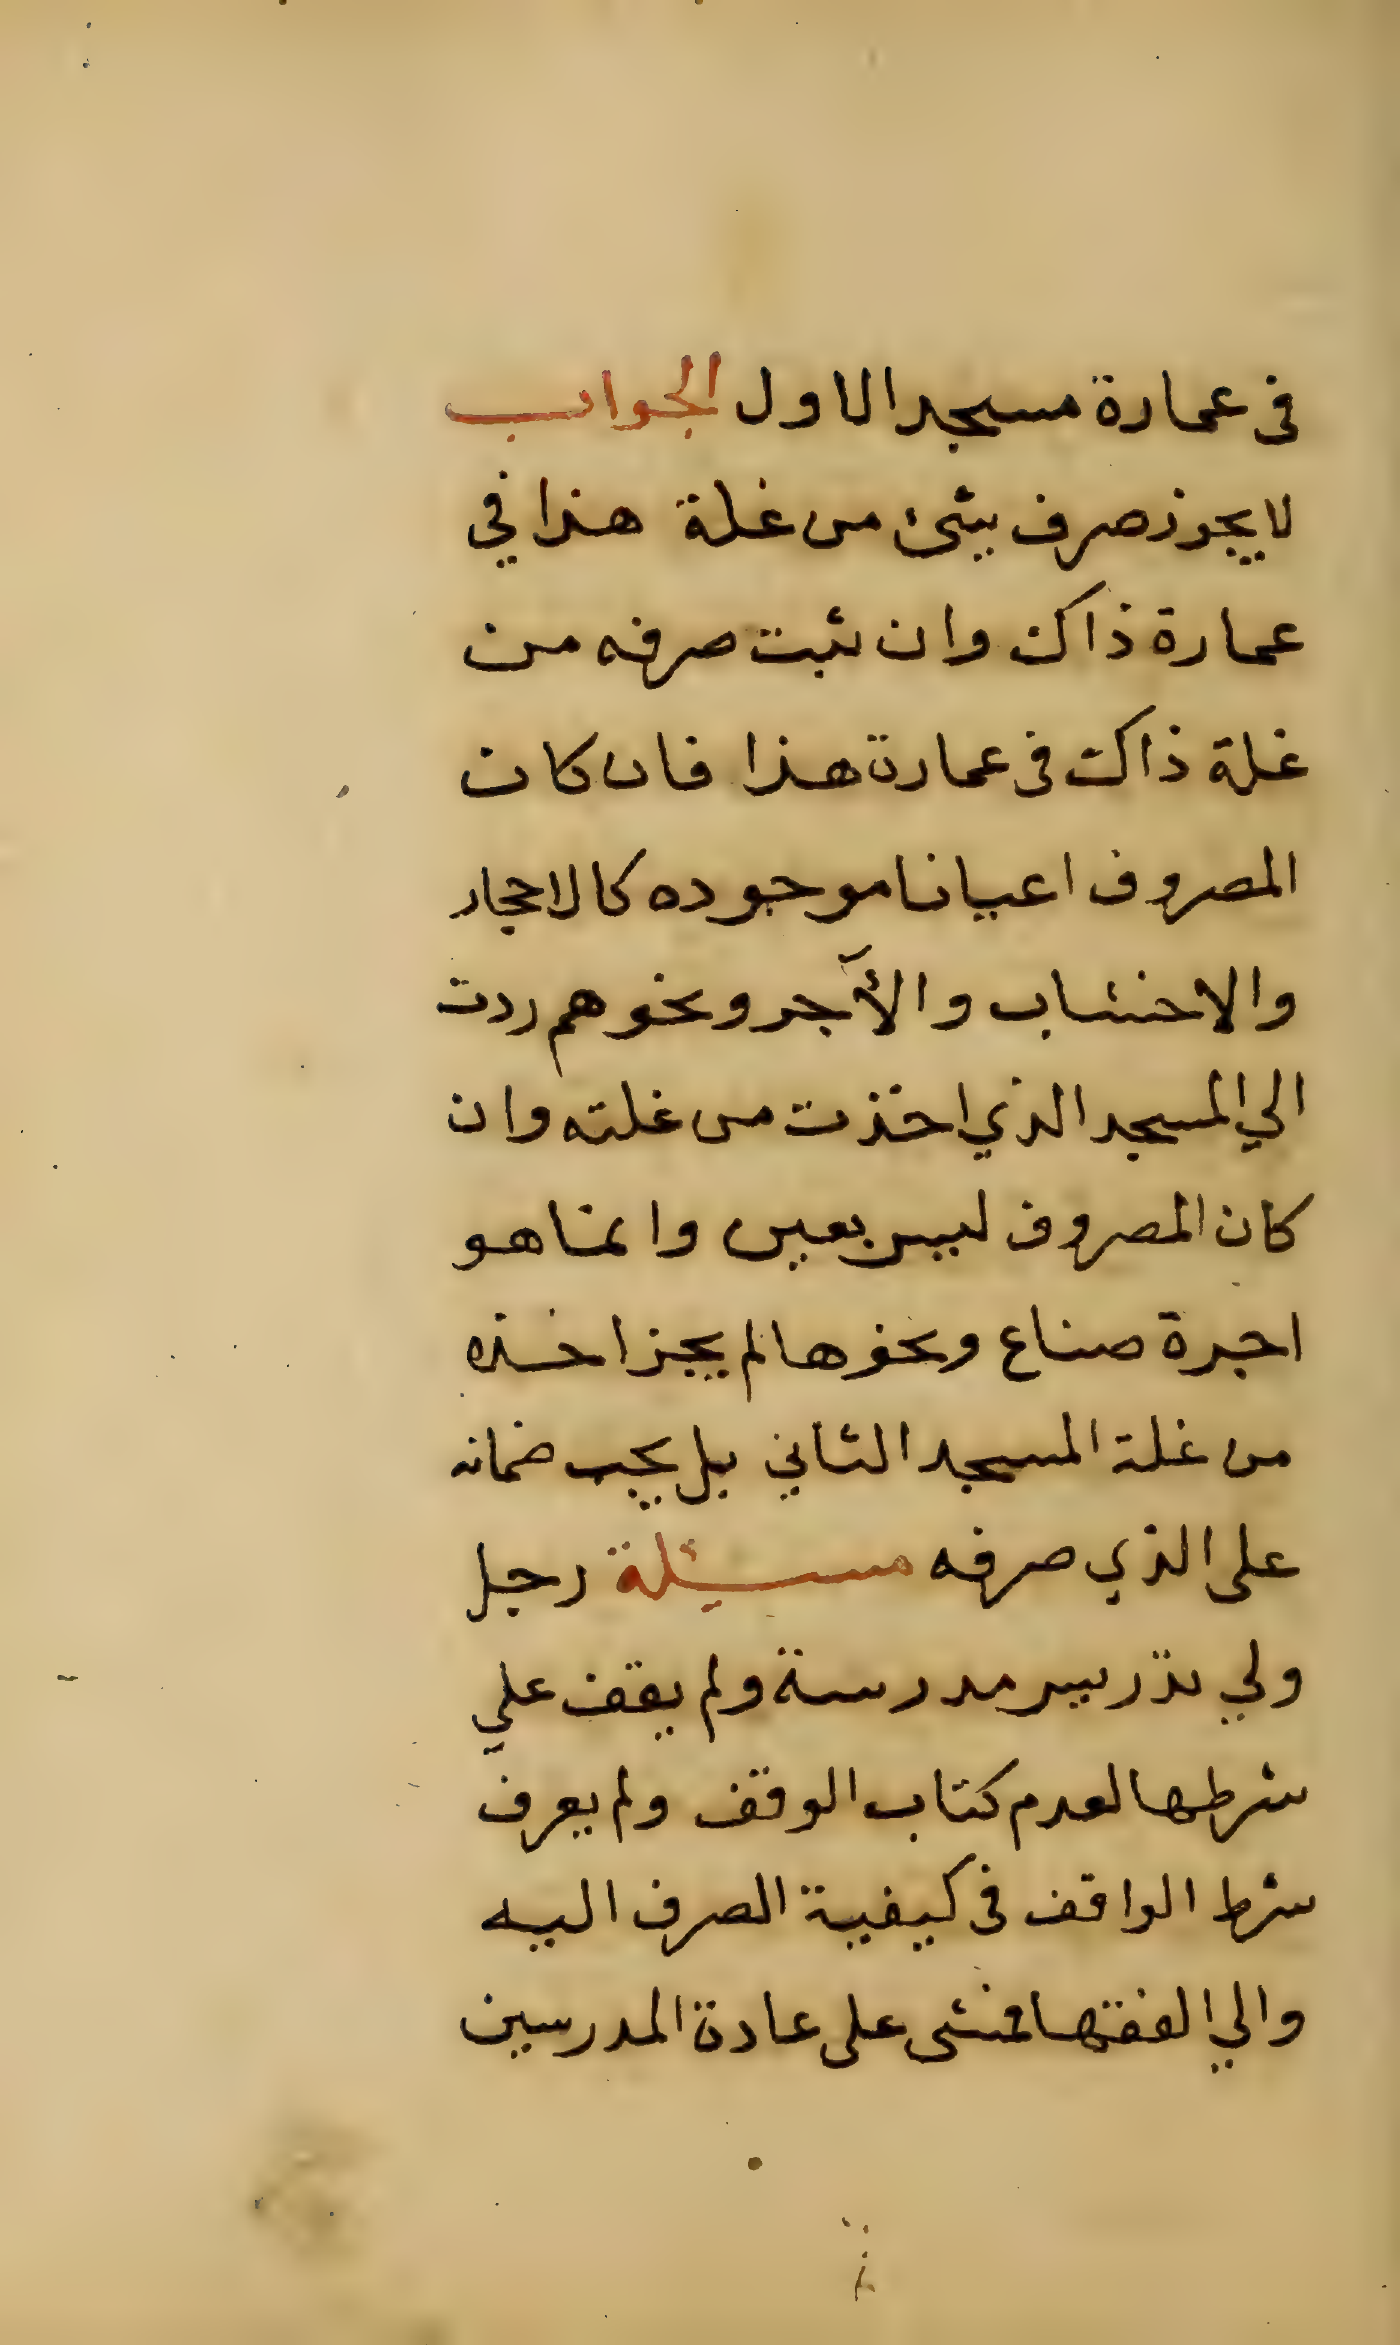 فى عمارة مسجد الاول الجواب
لا يجوز صرف بشئ من غلة هذا في
عمارة ذاك وان ثبت صرفه من
غلة ذاك فى عمارة هذا فان كان
المصروف اعيانا موجوده كالاحجار
والاخشاب والأجر ونحوهم ردت
الي المسجد الذي اخذت من غلته وان
كان المصروف ليس بعين وانما هو
اجرة صناع ونحوها لم يجز اخذه
من غلة المسجد الثاني بل يجب ضمانه
على الذي صرفه مسئلة رجل
ولي تدريس مدرسة ولم يقف علي
شرطها لعدم كتاب الوقف ولم يعرف
شرط الواقف فى كيفية الصرف اليه
والي الفقها فمشى على عادة المدرسين